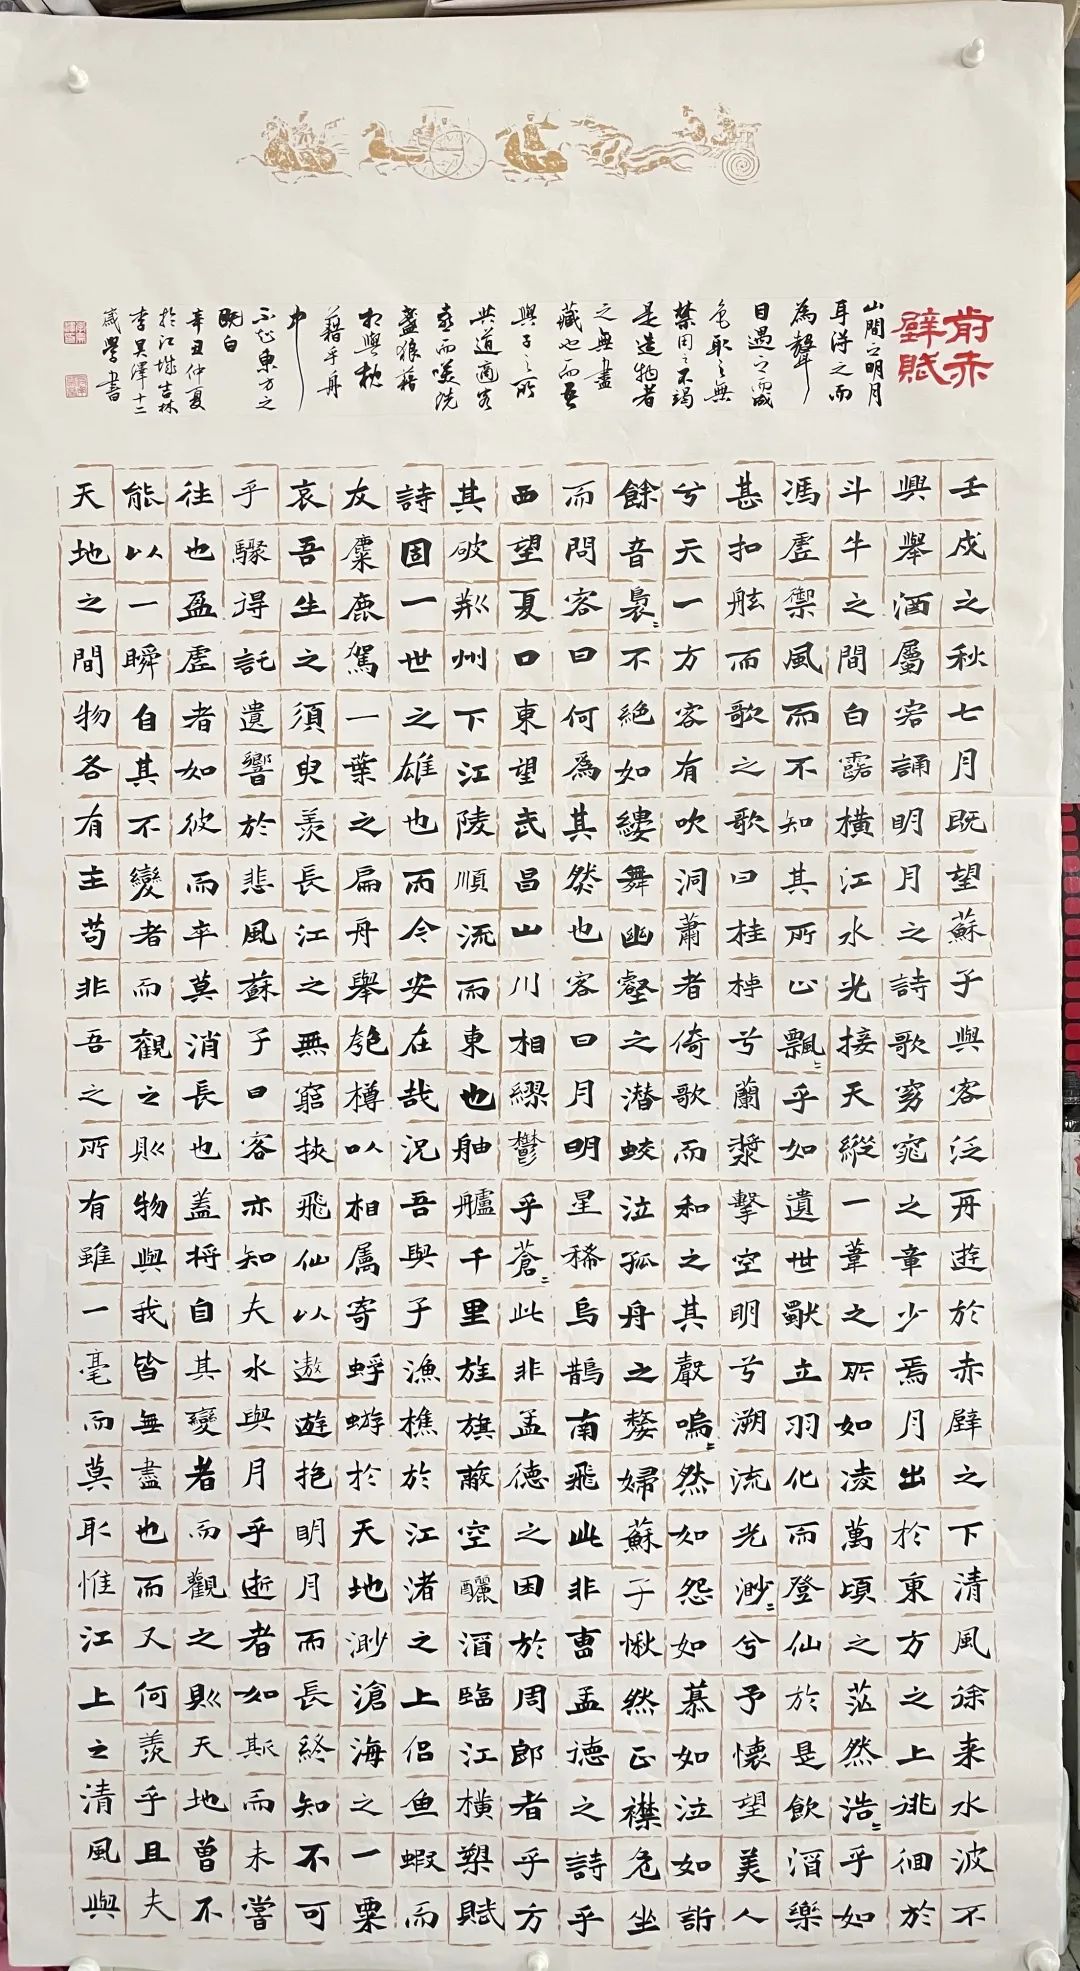 前赤
壁賦
壬戌之秋七月既望蘇子與客泛舟遊於赤壁之下清風徐来水波不
興舉酒屬客誦明月之詩歌窈窕之章少焉月出於東方之上徘徊於
斗牛之間白露橫江水光接天縱一葦之所如凌萬頃之茫然浩〻乎如
馮虛禦風而不知其所止飄〻乎如遺世獨立羽化而登仙於是飲酒樂
甚扣舷而歌之歌曰桂棹兮蘭槳擊空明兮溯流光渺〻兮予懷望美人
兮天一方客有吹洞蕭者倚歌而和之其聲嗚〻然如怨如慕如泣如訴
餘音裊〻不絕如縷舞幽壑之潛蛟泣孤舟之嫠婦蘇子愀然正襟危坐
而問客曰何為其然也客曰月明星稀烏鵲南飛此非曹孟德之詩乎
西望夏口東望武昌山川相繆鬱乎蒼〻此非孟德之困於周郎者乎方
其破荊州下江陵順流而東也舳艫千里旌旗蔽空釃酒臨江橫槊賦
詩固一世之雄也而今安在哉況吾與子漁樵於江渚之上侶鱼蝦而
友麋鹿駕一葉之扁舟舉匏樽以相屬寄蜉蝣於天地渺滄海之一粟
哀吾生之須臾羨長江之無窮挾飛仙以遨遊抱明月而長終知不可
乎驟得託遺響於悲風蘇子曰客亦知夫水與月乎逝者如斯而未嘗
往也盈虛者如彼而卒莫消長也蓋将自其變者而觀之則天地曾不
能以一瞬自其不變者而觀之則物與我皆無盡也而又何羨乎且夫
天地之間物各有主苟非吾之所有雖一毫而莫取惟江上之清風與
山間之明月
耳得之而
為聲
目遇之而成
色取之無
禁用之不竭
是造物者
之無盡
藏也而吾
與子之所
共適客
喜而笑洗
盞狼藉
相與枕
藉乎舟
中
不知東方之
既白
辛丑仲夏
於江城吉林
李昊澤十二
歲學書